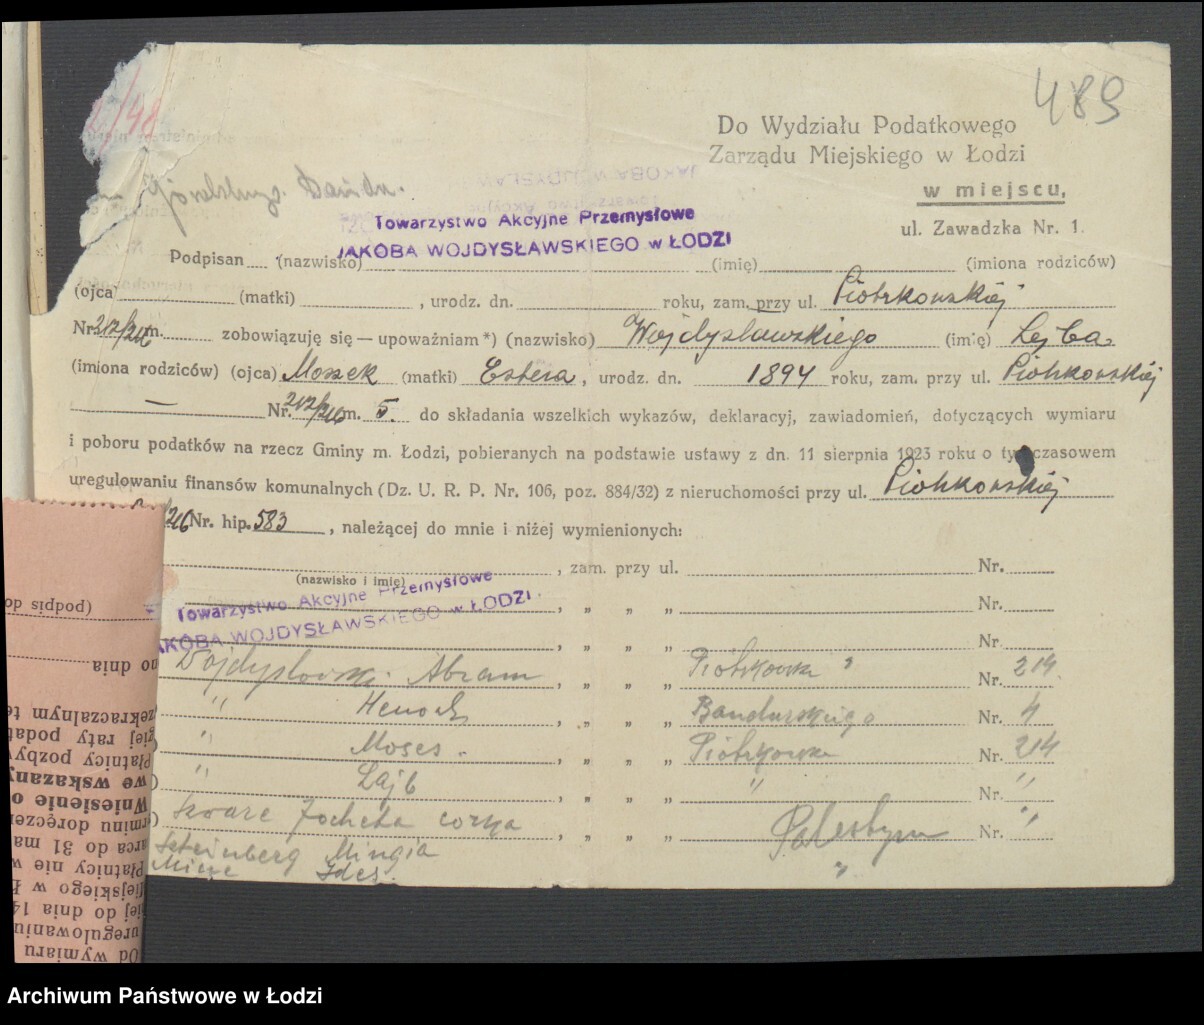 489
Do Wydziału Podatkowego
Zarządu Miejskiego w Łodzi
w miejscu,
ul. Zawadzka Nr. 1.
Towarzystwo Akcyjne Przemysłowe
JAKOBA WOJDYSŁAWSKIEGO w ŁODZI
Podpisan (nazwisko) (imię) (imiona rodziców)
(ojca) (matki) , urodz. dn. roku, zam. przy ul. Piotrkowskiej
Nr. 212/214 m. zobowiązuję się — upoważniam *) (nazwisko) Wojdysławskiego (imię) Lejba
(imiona rodziców) (ojca) Moszek (matki) Estera, urodz. dn. 1894 roku, zam. przy ul. Piotrkowskiej
— Nr. m. 5. do składania wszelkich wykazów, deklaracyj, zawiadomień, dotyczących wymiaru
i poboru podatków na rzecz Gminy m. Łodzi, pobieranych na podstawie ustawy z dn. 11 sierpnia 1923 roku o tymczasowem
uregulowaniu finansów komunalnych (Dz. U. R. P. Nr. 106, poz. 884/32) z nieruchomości przy ul. Piotrkowskiej
Nr. hip. 583, należącej do mnie i niżej wymienionych:
, zam. przy ul. Nr.
(nazwisko i imię)
Towarzystwo Akcyjne Przemysłowe , „ „ „ Nr.
JAKOBA WOJDYSŁAWSKIEGO w ŁODZI. , „ „ „ Nr.
Wojdysłowski Abram , „ „ „ Piotrkowska Nr. 214.
" Henoch , „ „ „ Bandurskiego Nr. 4
" Moses. , „ „ „ Piotrkowska Nr. 214
" Lajb , „ „ „ " Nr. "
Jocheta corka , „ „ „ Palestyna Nr. "
Szteinberg Mingia
Ides. "
(podpis do
no dnia
Płatnicy pozby
we wskazany
Wniesienie o
erminu doręczen
arca do 31 ma
Płatnicy nie w
iejskiego w Ł
iej do dnia 14
uregulowaniu
Od wymiaru
Archiwum Państwowe w Łodzi